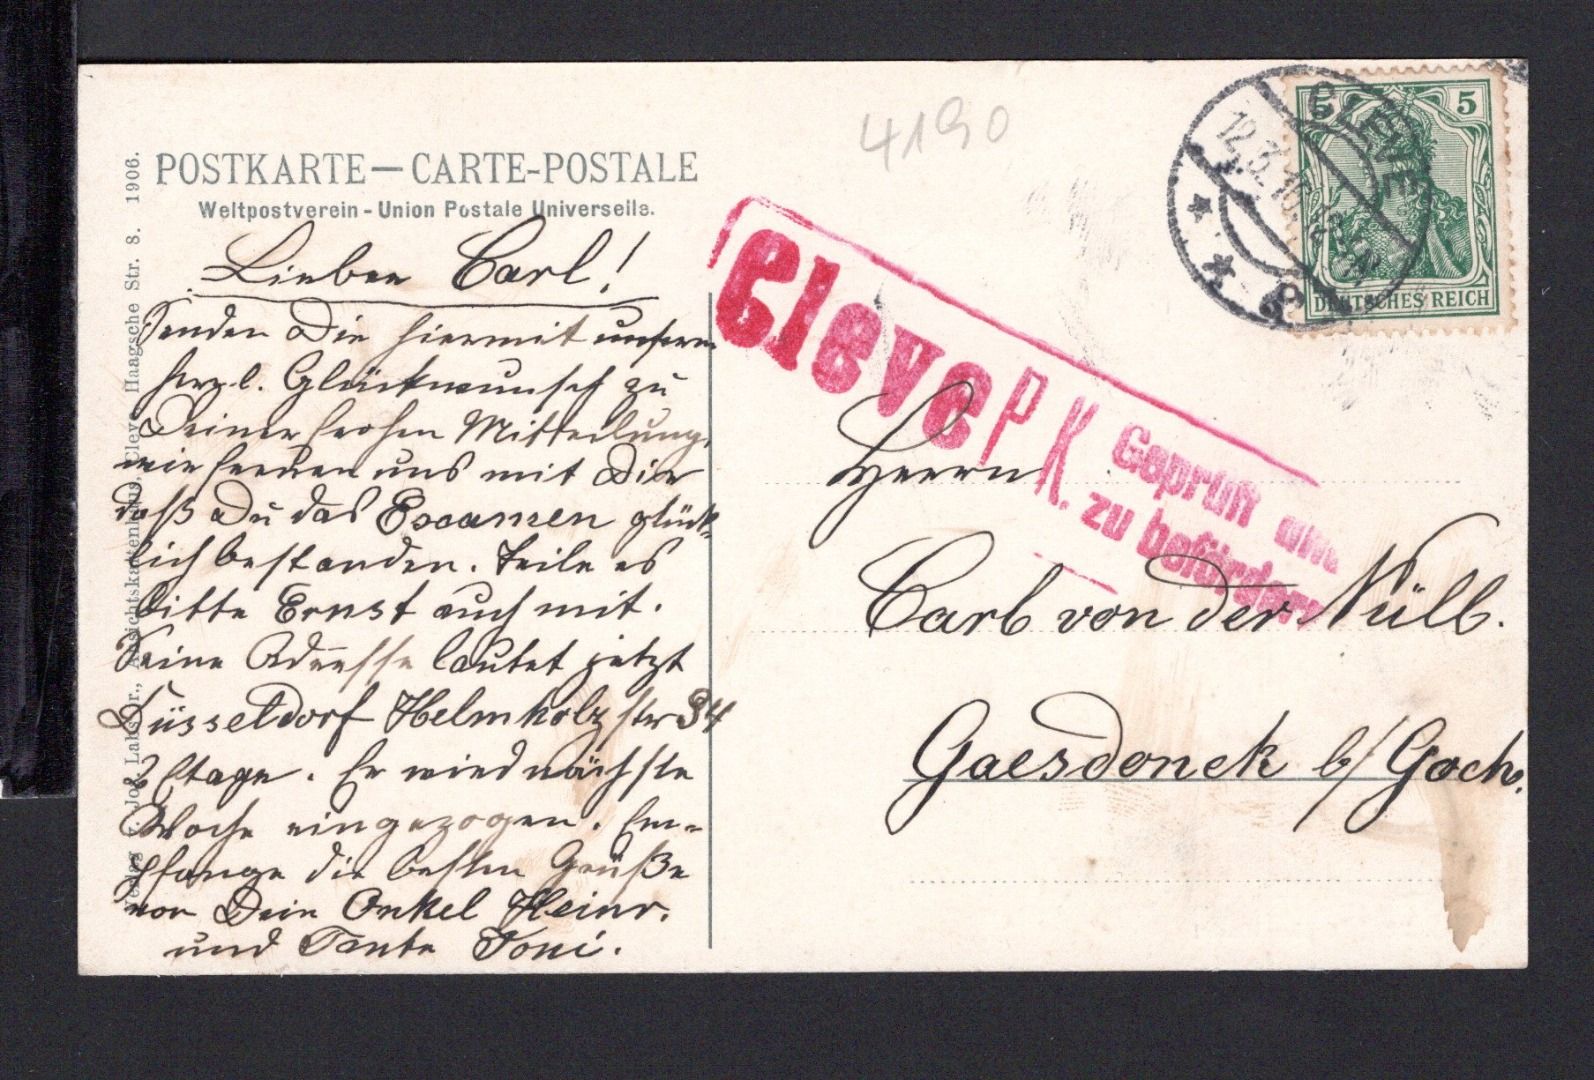 POSTKARTE — CARTE-POSTALE
Weltpostverein - Union Postale Universelle.
Lieber Carl!
Senden Dir hiermit unsern
herzl. Glückwunsch zu
Deiner frohen Mitteilung,
wir freuen uns mit Dir
daß Du das Examen glück-
lich bestanden. Teile es
bitte Ernst auch mit.
Seine Adresse lautet jetzt
Düsseldorf Helmholzstr 34
2 Etage. Er wird nächste
Woche eingezogen. Em-
pfange die besten Grüße
von Dein Onkel Heinr.
und Tante Toni.
Jos. Labs jr., Ansichtskartenhaus, Cleve, Haagsche Str. 8. 1906.
4190
Cleve P.K. Geprüft und
zu befördern
CLEVE
12.3.
5 5
DEUTSCHES REICH
Herrn
Carl von der Nüll.
Gaesdonck b/ Goch.